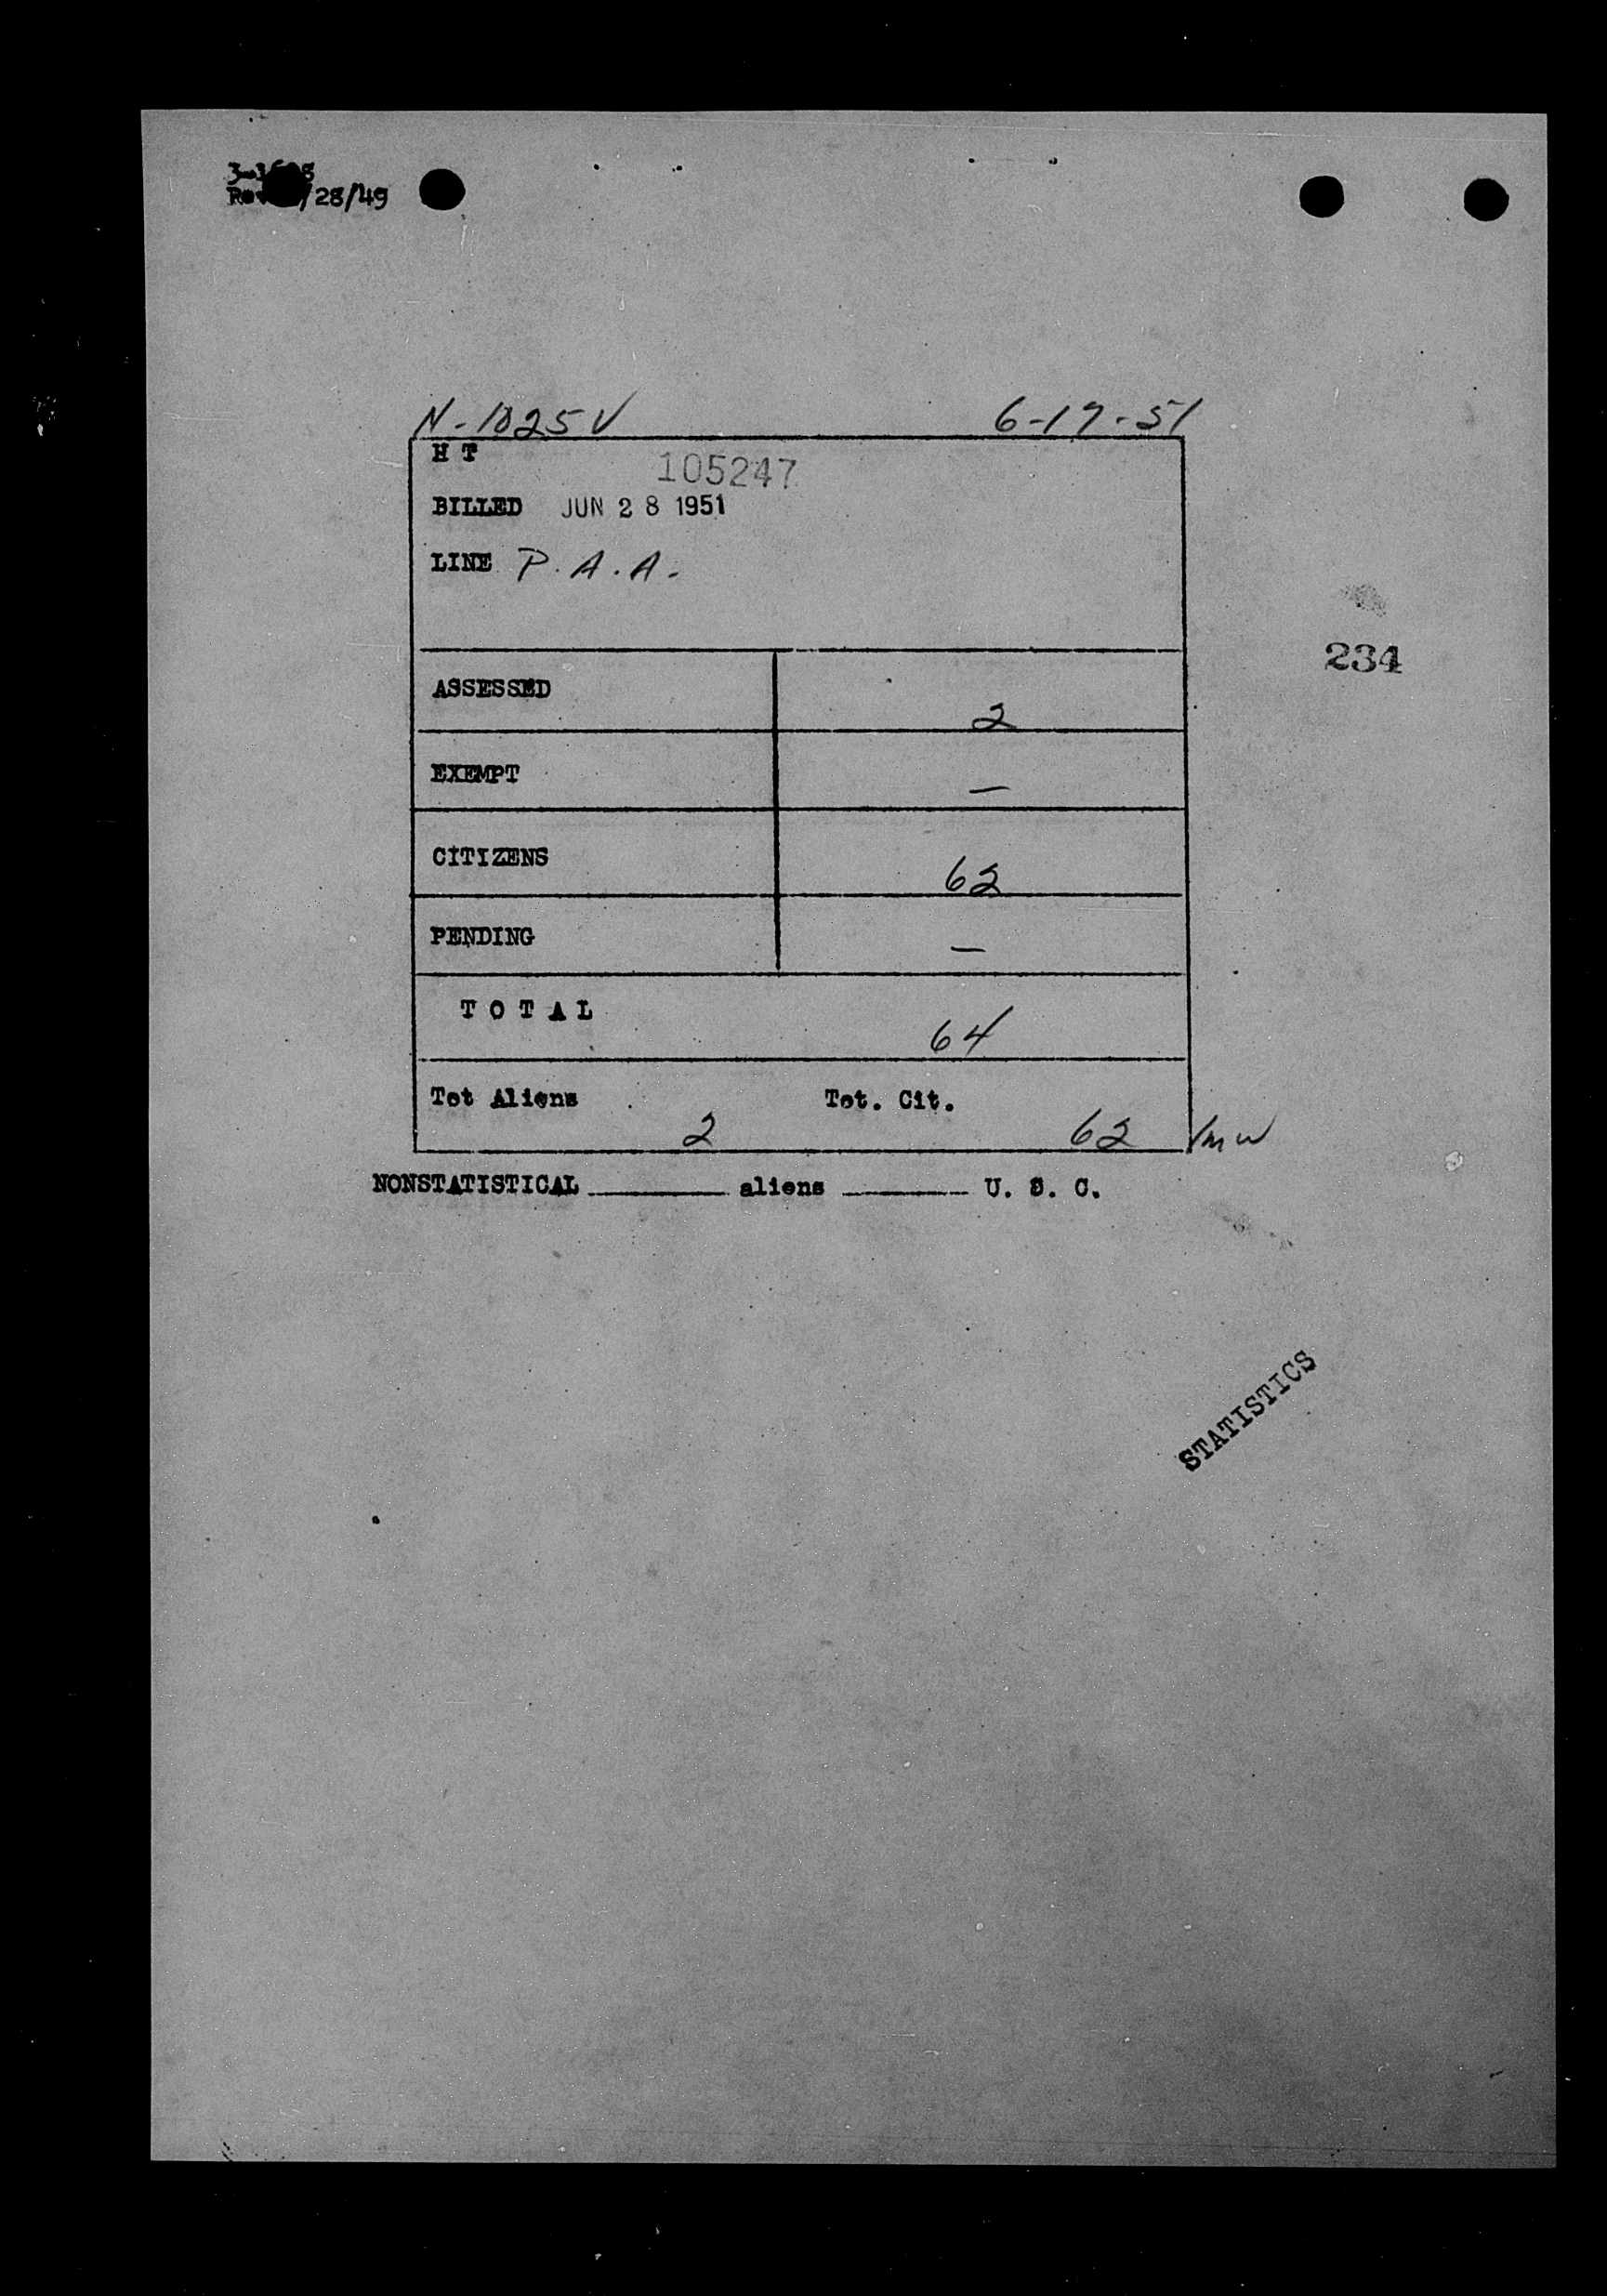 /28/49
N-1025V 6-19-51
H T
105247
BILLED JUN 28 1951
LINE P. A. A.
234
ASSESSED 2
EXEMPT —
CITIZENS 62
PENDING —
T O T A L 64
Tot Aliens 2 Tot. Cit. 62 /mw
NONSTATISTICAL ______ aliens ______ U. S. C.
STATISTICS